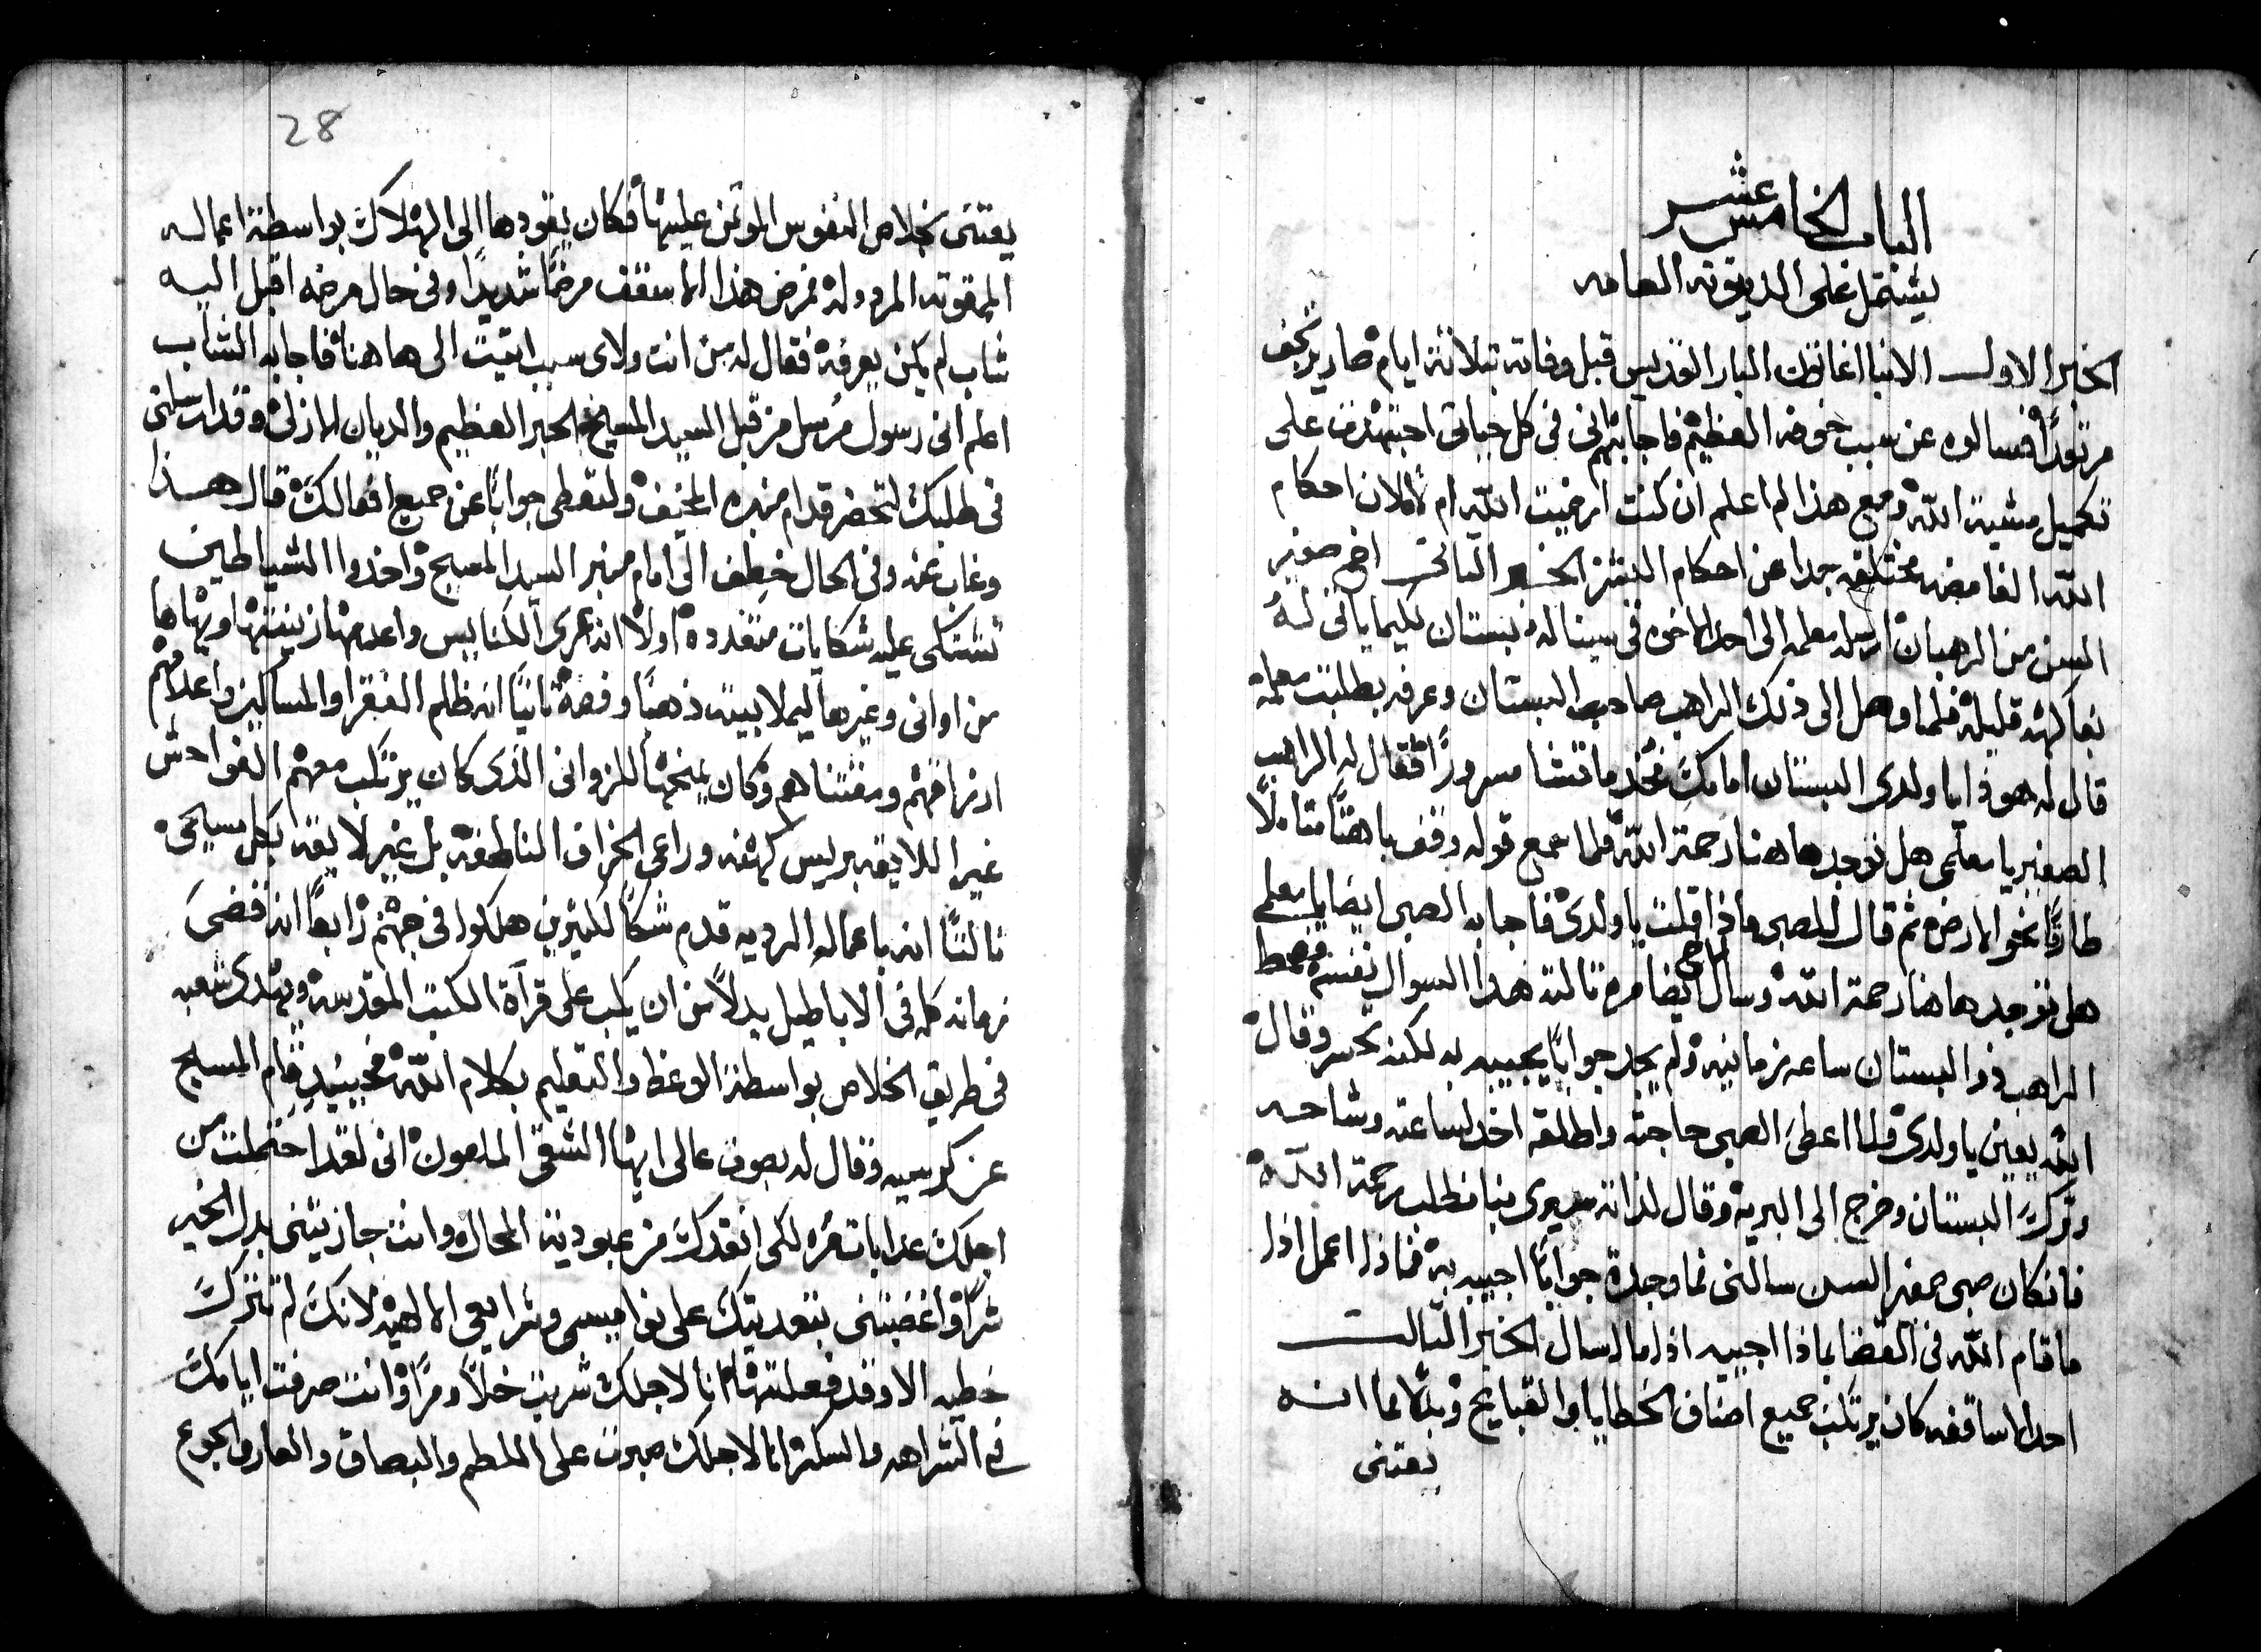 الباب الخامس عشر
يشتمل على الدينونه العامه
الخبر الاول الانبا اغاثون البار القديس قبل وفاته بثلاثة ايام صار يرتجف
مرتعدًا فسالوه عن سبب خوفه العظيم فاجابهم انى فى كل حياتى اجتهدت على
تكميل مشية الله ومع هذا لم اعلم ان كنت ارضيت الله ام لا لان احكام
الله الغامضه مختلفه جدا عن احكام البشر الخبر الثانى اخ صغير
السن من الرهبان ارسله معلمه الى احد الاخوه فى سينا له بستان لكيما ياتى له
بفاكهه قليله فلما وصل الى ذلك الراهب صاحب البستان وعرفه بطلبت معلمه
قال له هوذا يا ولدى البستان امامك فخذ ما تشا مسرورًا فقال له الراهب
الصغير يا معلمى هل توجد هاهنا رحمة الله فلما سمع قوله وقف باهتًا متاملًا
طارقًا نحو الارض ثم قال للصبى ماذا قلت يا ولدى فاجابه الصبى ايضا يا معلمى
هل توجد هاهنا رحمة الله وسال ايضا مره ثالثه هذا السوال نفسه
الراهب ذو البستان ساعه زمانيه ولم يجد جوابًا يجيبه به لكنه تحسر وقال
الله يعين يا ولدى فلما اعطى الصبى حاجته واطلقه اخذ لساعته وشاحه
وترك البستان وخرج الى البريه وقال لذاته سيرى بنا نطلب رحمة الله
فانكان صبى صغير السن سالنى فما وجدة جوابًا اجيبه به فماذا اعمل اذا
ما قام الله فى القضا بماذا اجيبه اذا ما سال الخبر الثالث
احد الاساقفه كان يرتكب جميع اصناف الخطايا والقبايح وبدلا ما انه
يعتنى
28
يعتنى بخلاص النفوس الموتمن عليها فكان يقودها الى الهلاك بواسطة اعماله
الممقوته المرذوله فمرض هذا الاسقف مرضًا شديدًا وفى حال مرضه اقبل اليه
شاب لم يكن يعرفه فقال له من انت ولاى سبب اتيت الى هاهنا فاجابه الشاب
اعلم انى رسول مرسل من قبل السيد المسيح الحبر العظيم والديان الازلى وقد ارسلنى
فى طلبك لتحضر قدام منبره المخيف ولتعطى جوابًا عن جميع افعالك قال هذا
وغاب عنه وفى الحال خطف الى امام منبر السيد المسيح واخذوا الشياطين
تشتكى عليه شكايات متعدده اولًا انه عرى الكنايس واعدمها زينتها وبهاها
من اوانى وغيرها ليملا بيته ذهبًا وفضه ثانيًا انه ظلم الفقرا والمساكين واعدمهم
ارزاقهم ومقتناهم وكان يمنحها للزوانى الذى كان يرتكب معهم الفواحش
غير اللايقه بريس كهنه وراعى الخراف الناطقه بل غير لايقه بكل مسيحى
ثالثًا انه باعماله الرديه قدم شكًا لكثيرين هلكوا فى جهنم رابعًا انه قضى
زمانه كله فى الاباطيل بدلًا من ان يكب على قرآة الكتب المقدسه ويهدى شعبه
فى طريق الخلاص بواسطة الوعظ والتعليم بكلام الله فحينيذٍ قام المسيح
عن كرسيه وقال له بصوت عالى ايها الشقى الملعون انى لقد احتملت من
اجلك عذابات مره لكى انقذك من عبودية المحال وانت جازيتنى بدل الخير
شرًا واغضبتنى بتعديك على نواميسى وشرايعى الالهيه لانك لم تترك
خطيه الا وقد فعلتها انا لاجلك شربت خلًا ومرًا وانت صرفت ايامك
فى الشراهه والسكر انا لاجلك صبرت على اللطم والبصاق والعار والجوع